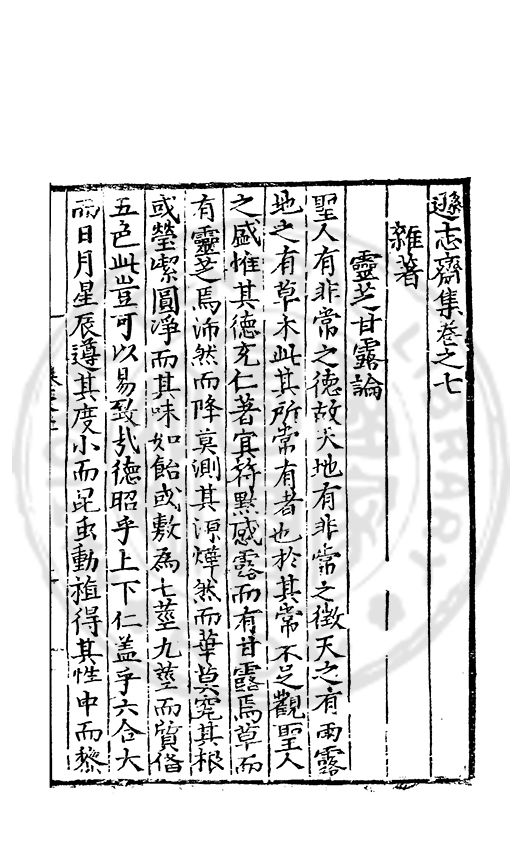 遜志齋集卷之七
雜著
靈芝甘露論
聖人有非常之德故天地有非常之徵天之有雨露
地之有草木此其所常有者也於其常不足觀聖人
之盛惟其德充仁著冥符默感露而有甘露焉草而
有靈芝焉沛然而降莫測其源燁然而華莫究其根
或瑩潔圓淨而其味如飴或敷為七莖九莖而質偹
五色此豈可以易致㢤德昭乎上下仁盖乎六合大
而日月星辰遵其度小而昆虫動植得其性中而黎